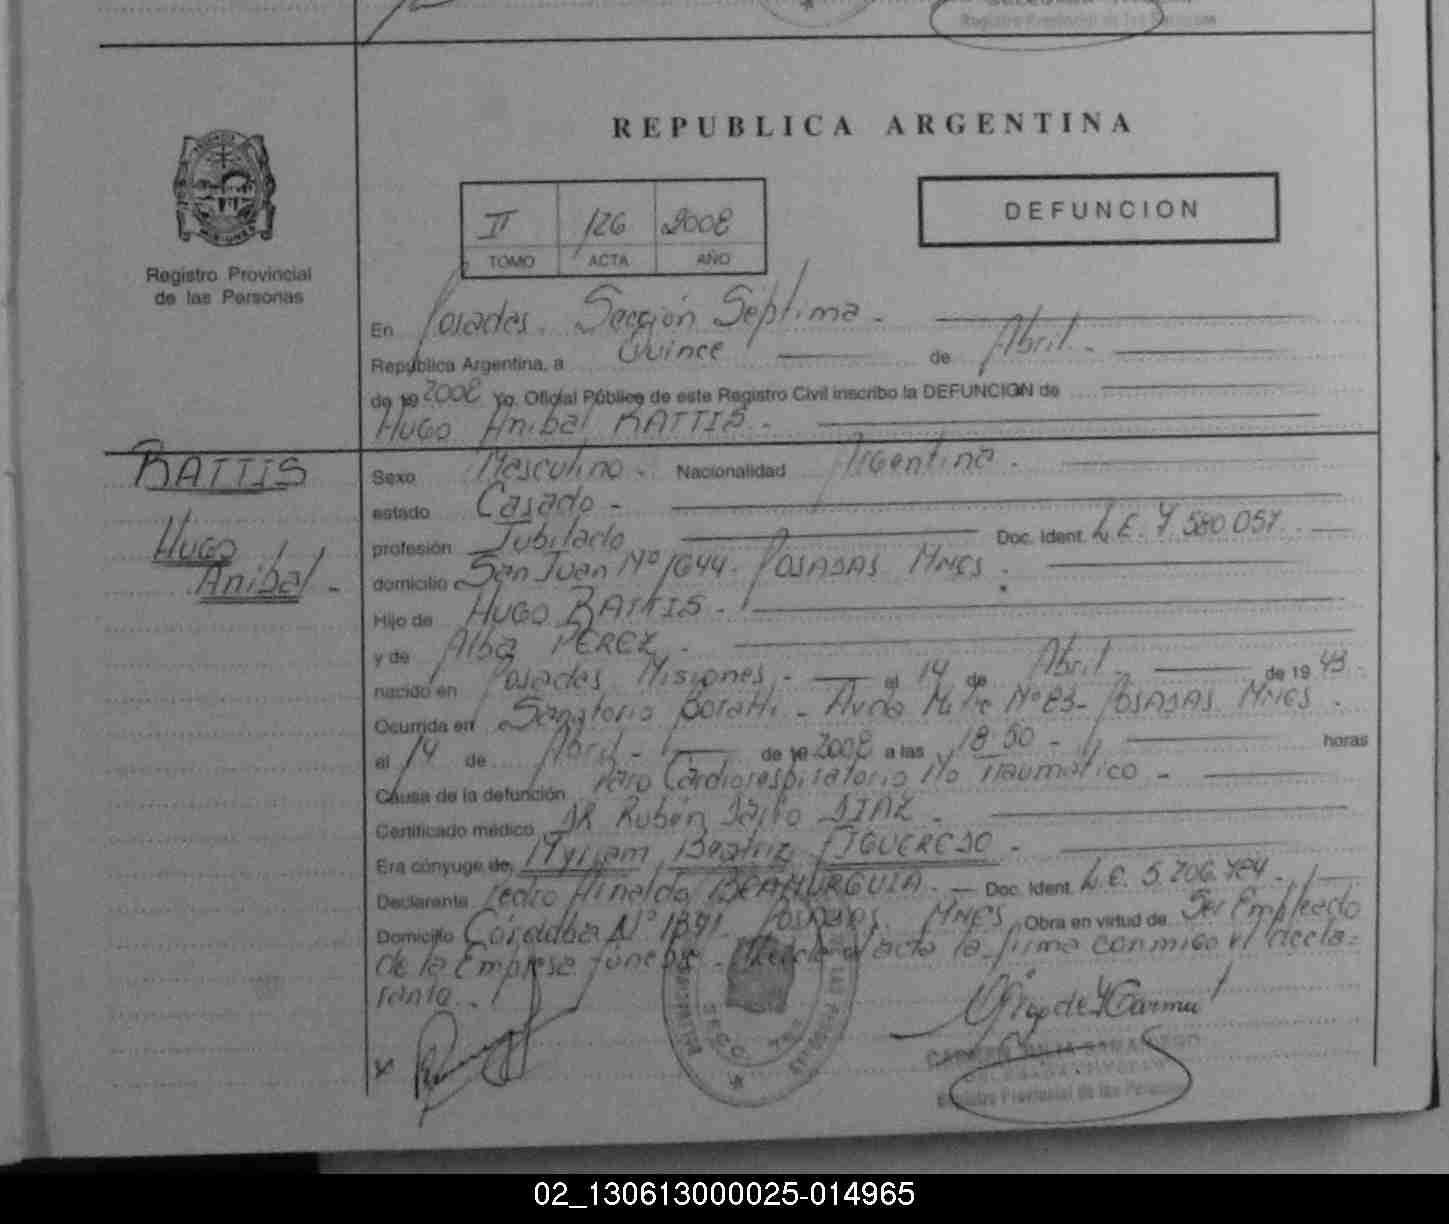 Registro Provincial de las Personas
REPUBLICA ARGENTINA
DEFUNCION
II 126 2008
TOMO ACTA AÑO
Registro Provincial
de las Personas
En Posadas. Sección Séptima -
República Argentina, a Quince de Abril -
de 19 2008 Yo, Oficial Público de este Registro Civil inscribo la DEFUNCION de
Hugo Anibal BATTIS -
BATTIS
Hugo
Anibal -
Sexo Masculino - Nacionalidad Argentina -
estado Casado -
profesión Jubilado Doc. Ident. L.E. 7.580.057
domicilio San Juan Nº 1644 - POSADAS Mnes.
Hijo de HUGO BATTIS -
y de Alba PEREZ -
nacido en Posadas Misiones - el 14 de Abril - de 19 43 -
Ocurrida en Sanatorio Boratti - Avda Mitre Nº 83 - POSADAS Mnes -
el 14 de Abril - de 19 2008 a las 18:50 - horas
Causa de la defunción Paro Cardiorespiratorio No Traumático -
Certificado médico DR Rubén DIAZ -
Era cónyuge de Myriam Beatriz FIGUEREDO -
Declarante Pedro Arnaldo BEAMURGUIA - Doc. Ident. L.E. 5.706.784 -
Domicilio Córdoba Nº 1891 POSADAS. Mnes Obra en virtud de Ser Empleado
de la Empresa fúnebre - el acta la firma conmigo el decla=
rante. -
Registro Provincial de las Personas
02_130613000025-014965